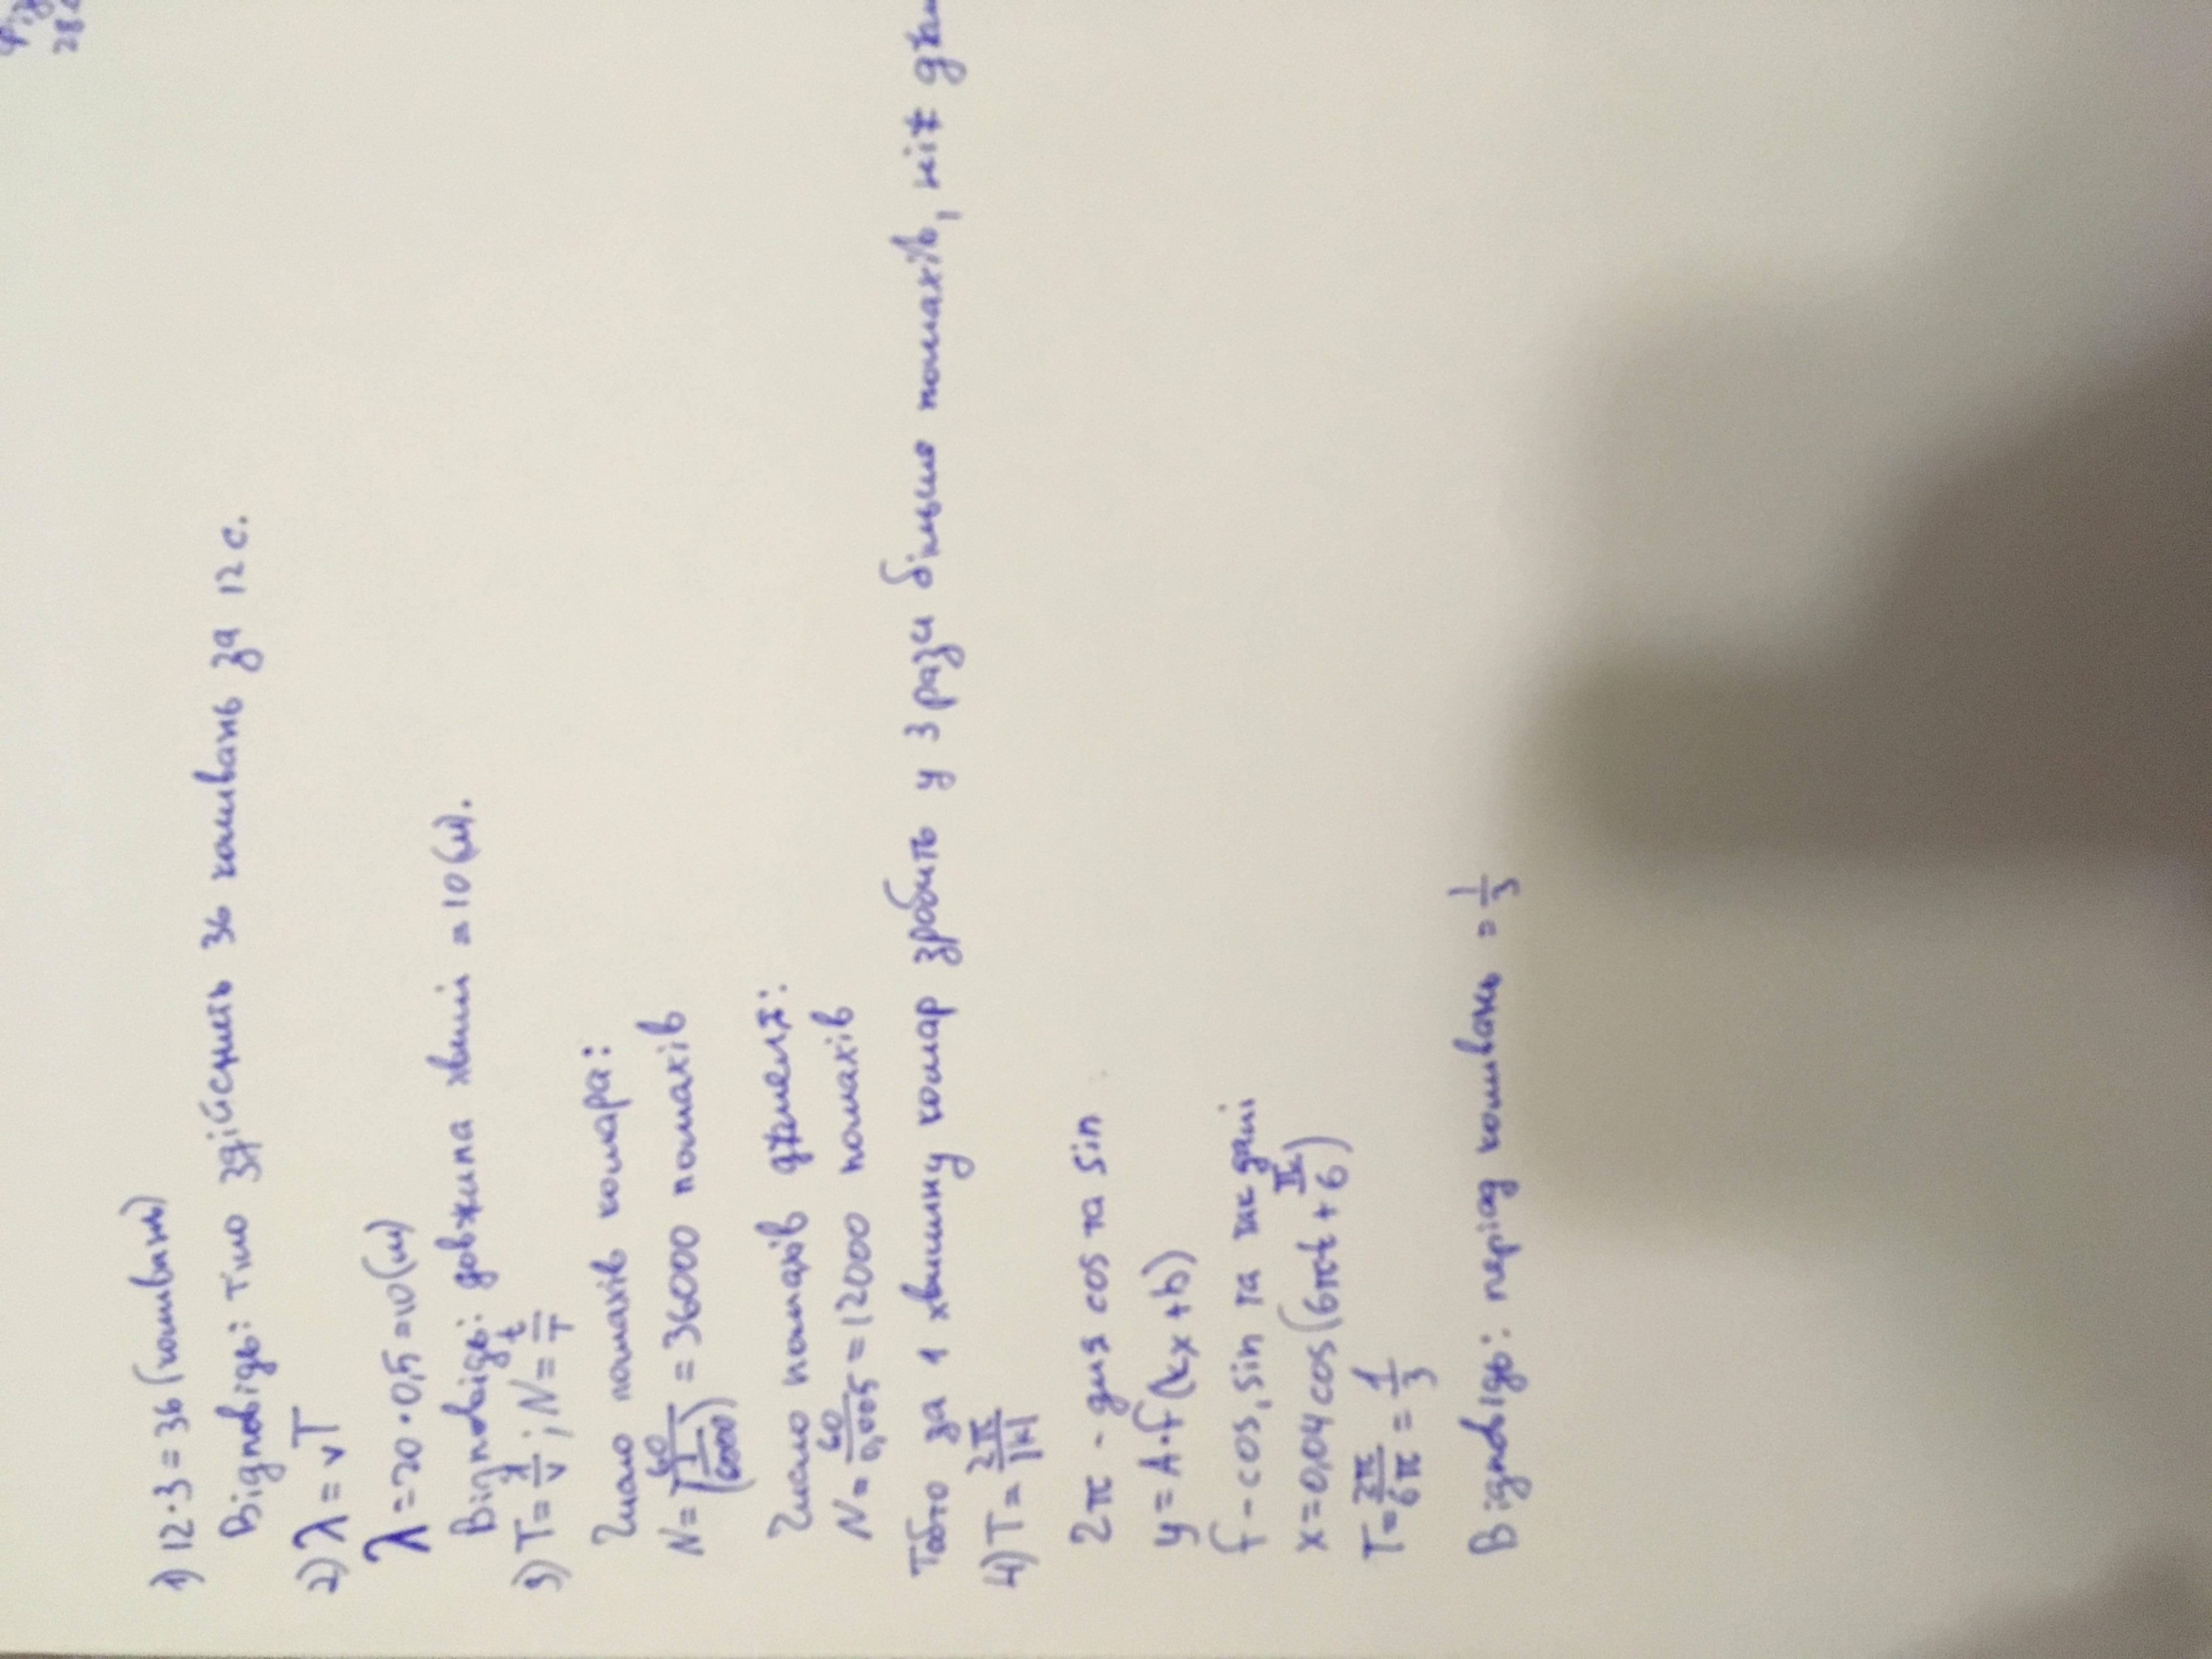 1) 12·3=36 (коливань)
Відповідь: тіло здійснить 36 коливань за 12 с.
2) λ=vT
λ=20·0,5=10(м)
Відповідь: довжина хвилі =10(м).
3) T=1/v; N=t/T
Число помахів комара:
N=60/(1/600)=36000 помахів
Число помахів джмеля:
N=60/0,005=12000 помахів
Тобто за 1 хвилину комар зробить у 3 рази більше помахів, ніж
4) T=2π/|k|
2π - для cos та sin
y=A·f(kx+b)
f-cos, sin та так далі
x=0,04cos(6πt+π/6)
T=2π/6π=1/3
Відповідь: період коливань =1/3